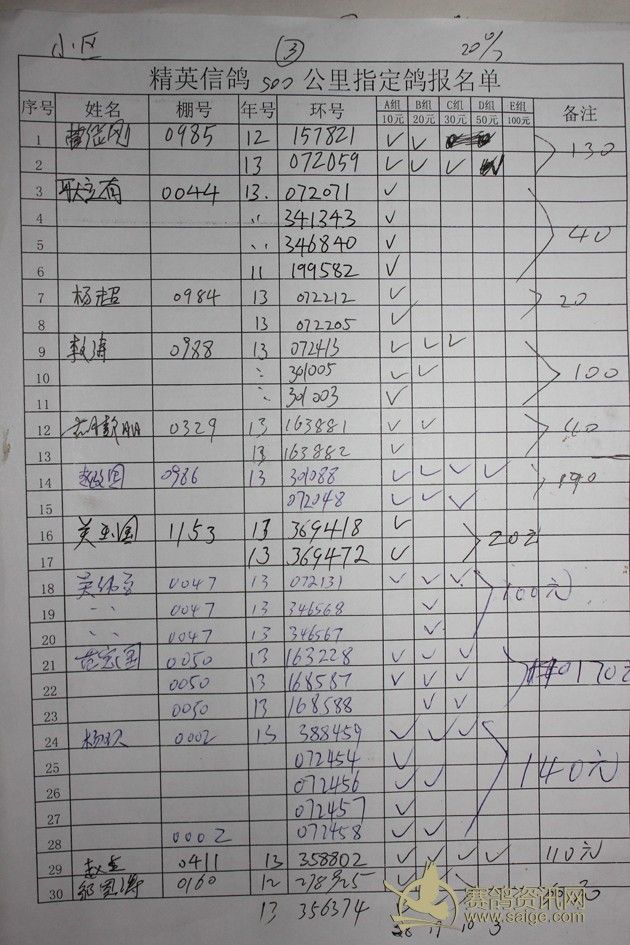 小区 ③ 20元
精英信鸽 500 公里指定鸽报名单
序号 姓名 棚号 年号 环号 A组 10元 B组 20元 C组 30元 D组 50元 E组 100元 备注
1 0985 12 157821 ✓ ✓ 130
2 13 072059 ✓ ✓ ✓
3 0044 13. 072071 ✓
4 〃 341343 ✓ 40
5 〃 346840 ✓
6 11 199582 ✓
7 杨超 0984 13 072212 ✓ 20
8 13 072205 ✓
9 0988 13 072413 ✓ ✓ ✓
10 〃 301005 ✓ ✓ 100
11 〃 301003 ✓
12 0329 13 163881 ✓ ✓ 40
13 13 163882 ✓
14 0986 13 301088 ✓ ✓ ✓ ✓ 190
15 072048 ✓ ✓ ✓
16 1153 13 369418 ✓ 20元
17 13 369472 ✓
18 0047 13 072131 ✓ ✓ ✓ 100元
19 〃 0047 13 346568 ✓
20 〃 0047 13 346567 ✓
21 0050 13 163228 ✓ ✓ ✓ 170元
22 0050 13 168587 ✓ ✓ ✓
23 0050 13 168588 ✓ ✓
24 0002 13 388459 ✓ ✓ ✓
25 072454 ✓ 140元
26 072456 ✓ ✓
27 072457 ✓
28 0002 072458 ✓ ✓
29 0411 13 358802 ✓ ✓ ✓ ✓ 110元
30 0160 12 278925 ✓
13 356374
赛鸽资讯网
www.saige.com